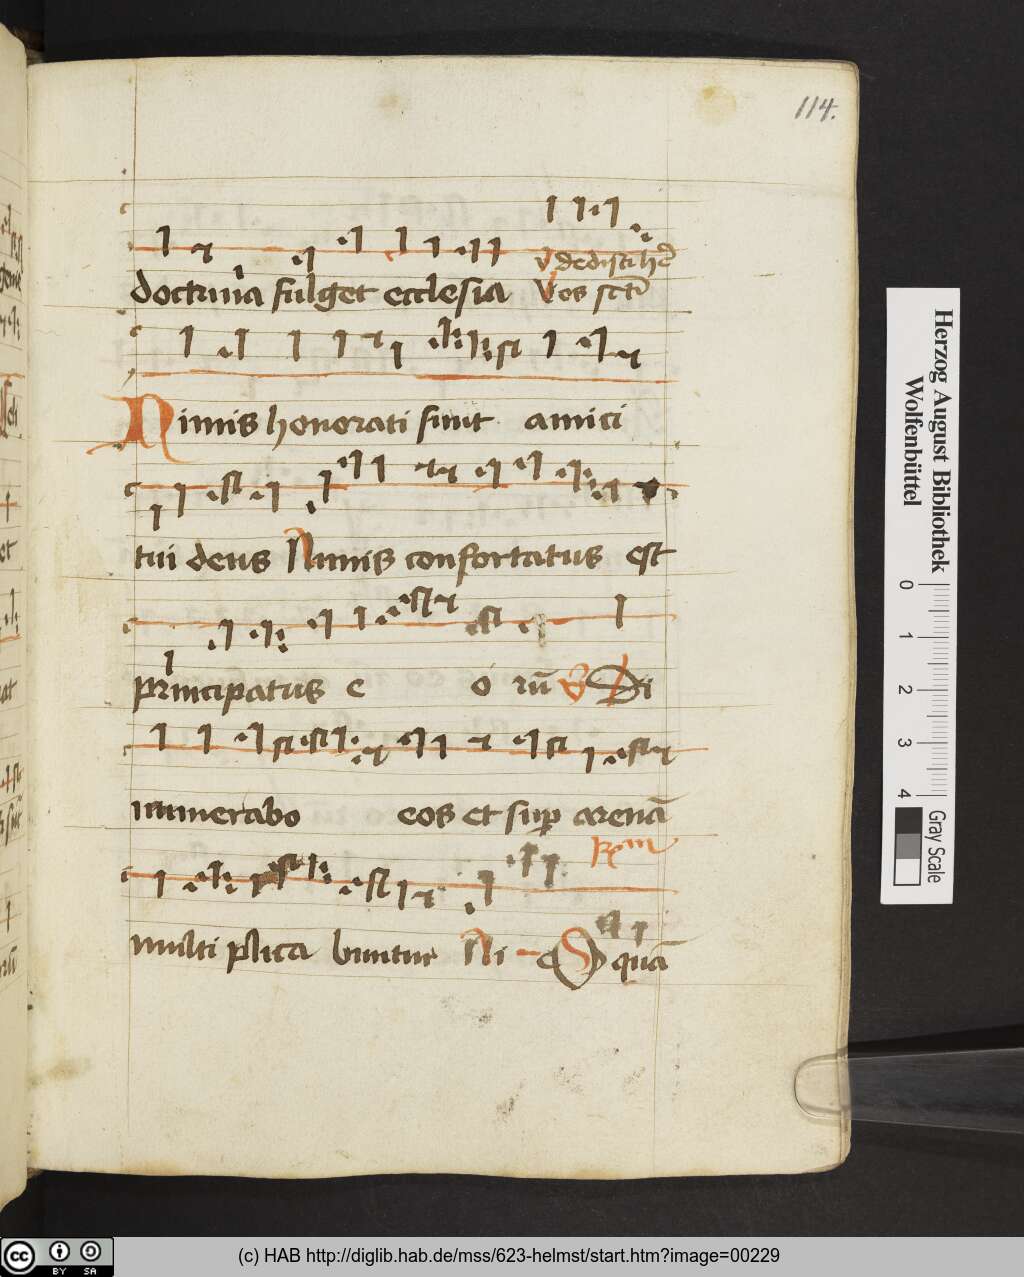 114.
doctrina fulget ecclesia
V dedisti her
Vos scti
Nimis honorati sunt amici
tui deus Nimis confortatus est
principatus e o rū V Di
numerabo eos et sup arenā
multi plica buntur Ni
quā
Herzog August Bibliothek
Wolfenbüttel
0 1 2 3 4
Gray Scale
cc BY SA
(c) HAB http://diglib.hab.de/mss/623-helmst/start.htm?image=00229